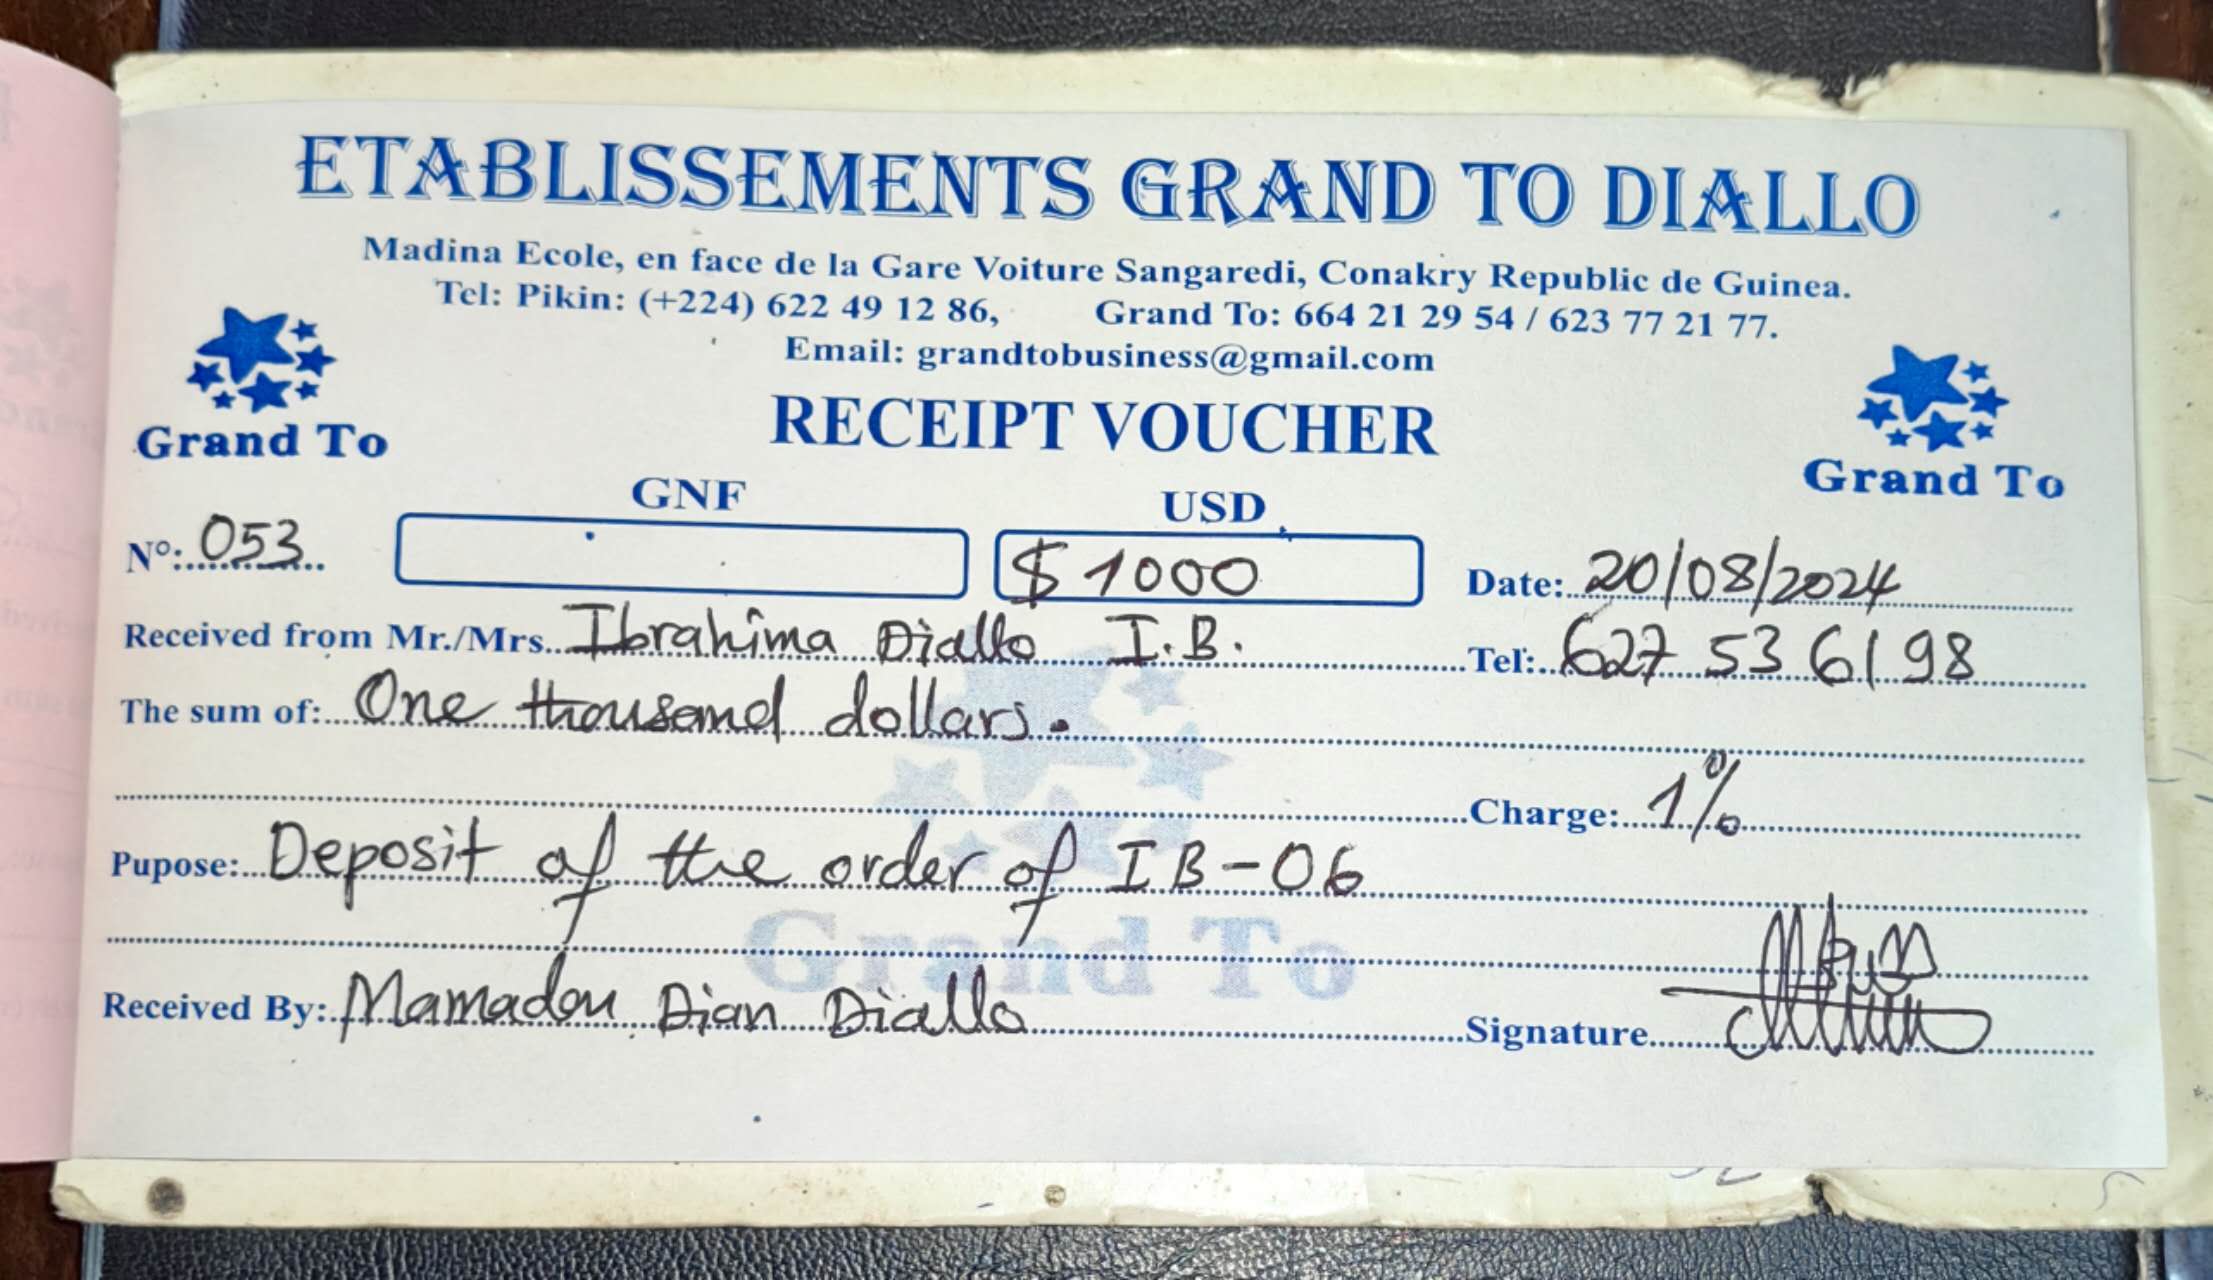 ETABLISSEMENTS GRAND TO DIALLO
Madina Ecole, en face de la Gare Voiture Sangaredi, Conakry Republic de Guinea.
Tel: Pikin: (+224) 622 49 12 86, Grand To: 664 21 29 54 / 623 77 21 77.
Email: grandtobusiness@gmail.com
Grand To
RECEIPT VOUCHER
Grand To
GNF USD
Nº: 053 $ 1000 Date: 20/08/2024
Received from Mr./Mrs. Ibrahima Diallo I.B. Tel: 627 53 61 98
The sum of: One thousand dollars.
Charge: 1%
Pupose: Deposit of the order of IB-06
Grand To
Received By: Mamadou Dian Diallo Signature